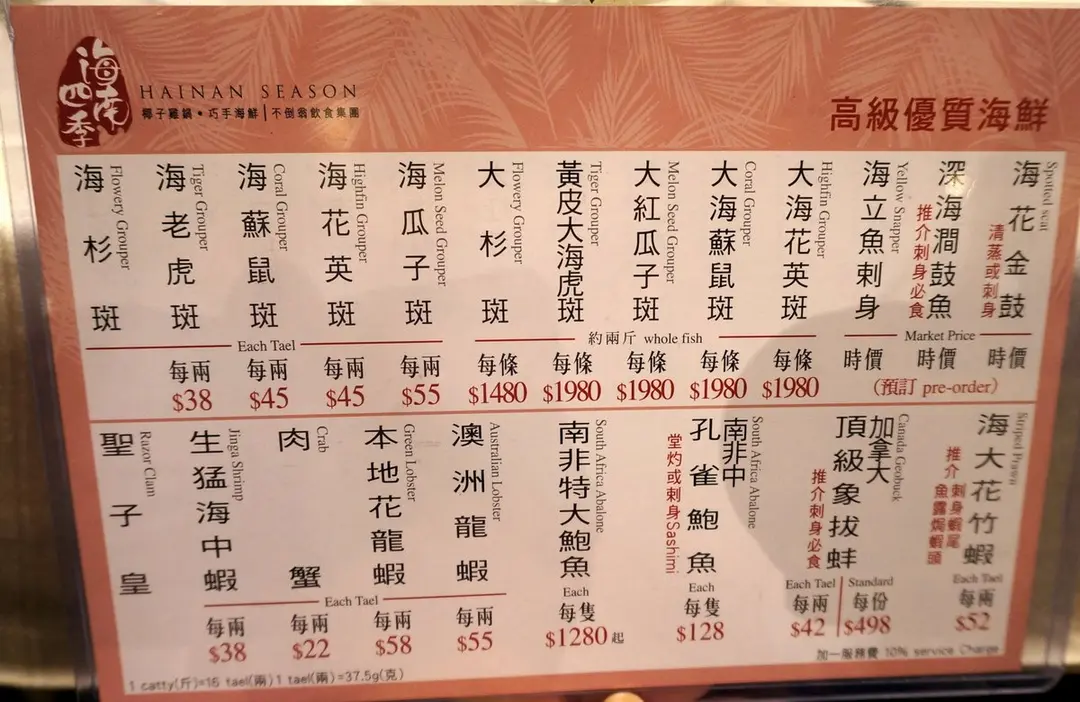 海南四季
HAINAN SEASON
椰子雞鍋•巧手海鮮│不倒翁飲食集團
高級優質海鮮
Spotted seat
海花金鼓
清蒸或刺身
深海澗鼓魚
推介刺身必食
Yellow Snapper
海立魚刺身
Highfin Grouper
大海花英斑
Coral Grouper
大海蘇鼠斑
Melon Seed Grouper
大紅瓜子斑
Tiger Grouper
黃皮大海虎斑
Flowery Grouper
大杉斑
Melon Seed Grouper
海瓜子斑
Highfin Grouper
海花英斑
Coral Grouper
海蘇鼠斑
Tiger Grouper
海老虎斑
Flowery Grouper
海杉斑
Each Tael
約兩斤 whole fish
Market Price
每兩 每兩 每兩 每兩 每條 每條 每條 每條 每條 時價 時價 時價
$38 $45 $45 $55 $1480 $1980 $1980 $1980 $1980 (預訂 pre-order)
Striped Prawn
海大花竹蝦
推介 刺身蝦尾
魚露焗蝦頭
Each Tael
每兩
$52
Canada Geobuck
加拿大
頂級象拔蚌
推介刺身必食
Each Tael Standard
每兩 每份
$42 $498
South Africa Abalone
南非中
孔雀鮑魚
堂灼或刺身Sashimi
Each
每隻
$128
South Africa Abalone
南非特大鮑魚
Each
每隻
$1280起
Australian Lobster
澳洲龍蝦
Green Lobster
本地花龍蝦
Crab
肉蟹
Jinga Shrimp
生猛海中蝦
Razor Clam
聖子皇
Each Tael
每兩 每兩 每兩 每兩
$38 $22 $58 $55
加一服務費 10% service Charge
1 catty(斤)=16 tael(兩)1 tael(兩)=37.5g(克)